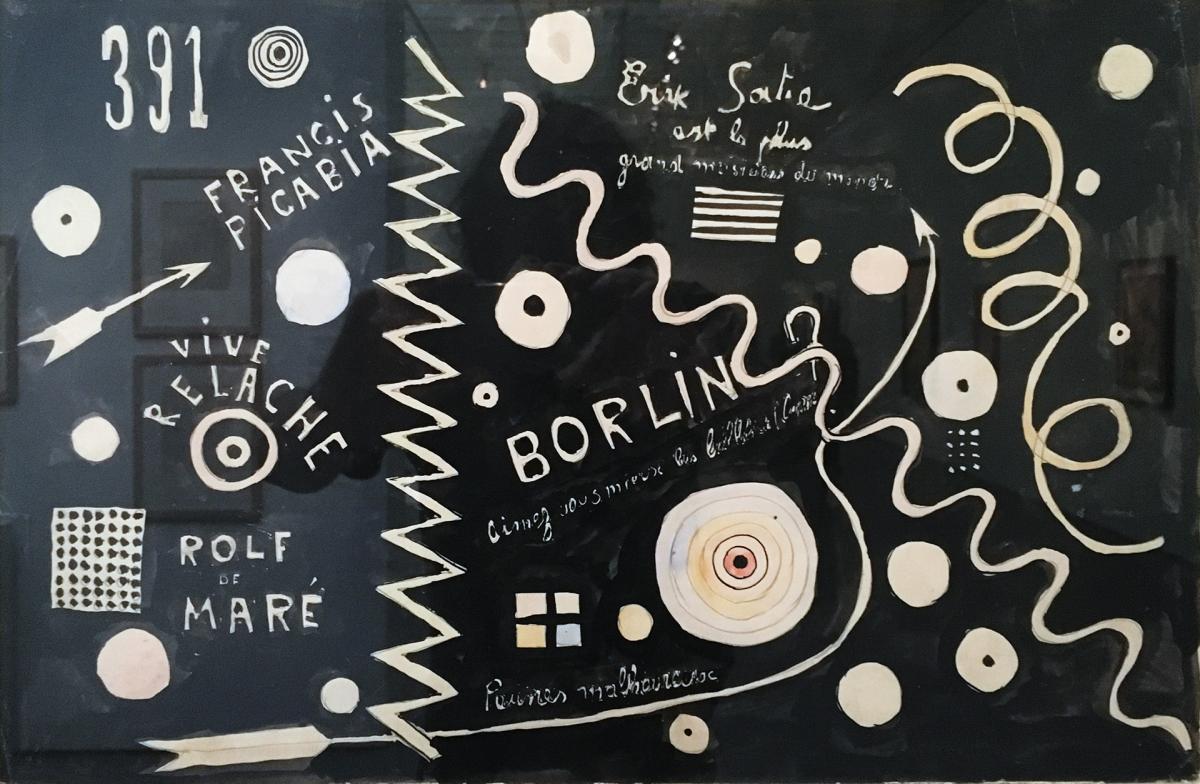 391
FRANCiS
PiCABiA
ViVE
RELACHE
ROLF
DE
MARÉ
Erik Satie
est le plus
grand musicien du monde
BORLiN
aimez vous mieux les ballets à l'Opéra
?
Pauvres malheureux